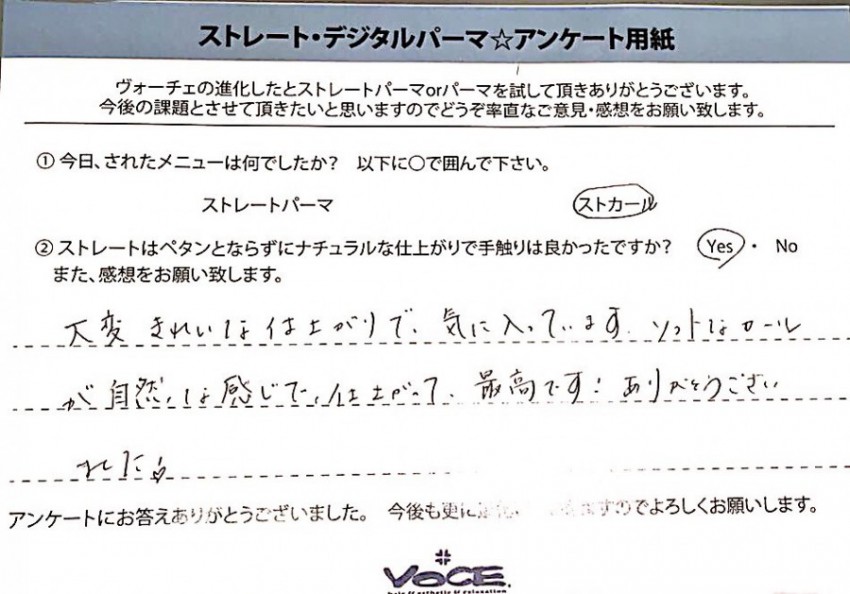 ストレート・デジタルパーマ☆アンケート用紙
ヴォーチェの進化したとストレートパーマorパーマを試して頂きありがとうございます。
今後の課題とさせて頂きたいと思いますのでどうぞ率直なご意見・感想をお願い致します。
① 今日、されたメニューは何でしたか？　以下に〇で囲んで下さい。
ストレートパーマ　ストカール
② ストレートはペタンとならずにナチュラルな仕上がりで手触りは良かったですか？　Yes ・ No
また、感想をお願い致します。
大変 きれいな仕上がりで、気に入っています。ソフトなカール
が自然な感じで、仕上がって、最高です！ありがとうござい
ました
アンケートにお答えありがとうございました。　今後も更に ますのでよろしくお願いします。
VOCE.
hair & esthetic & relaxation